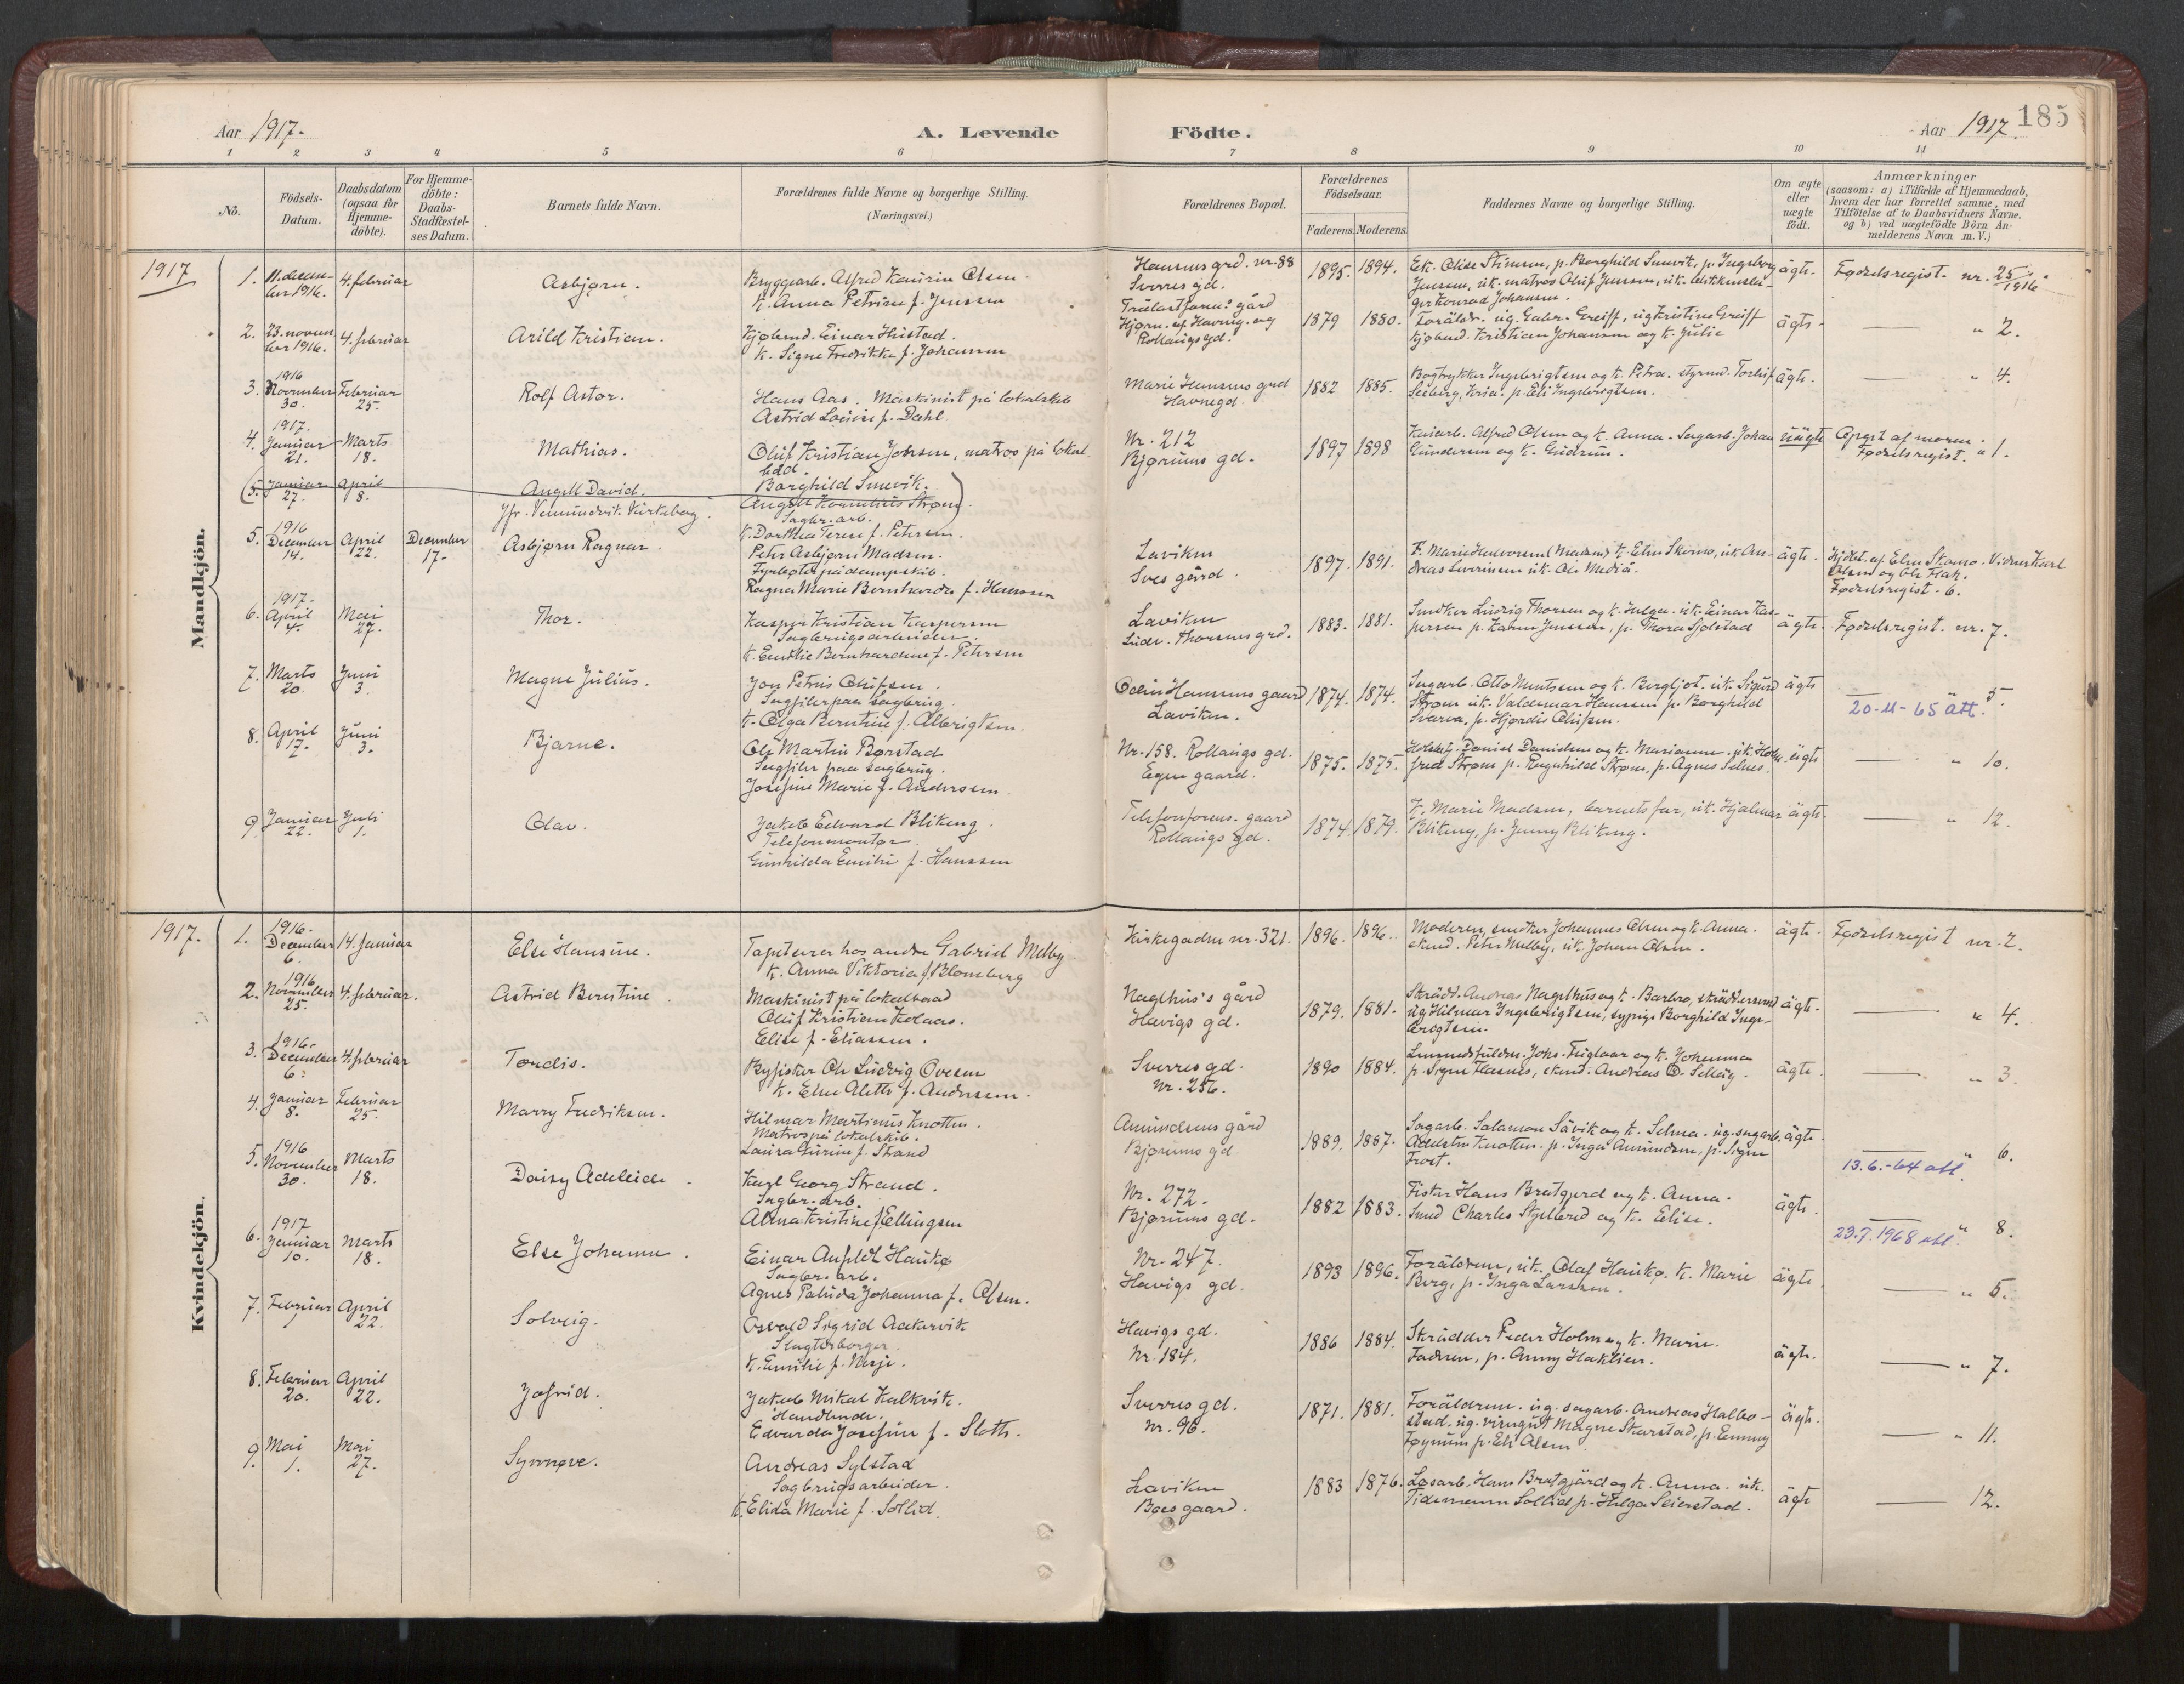 Aar 1917.
A. Levende
Födte.
Aar 1917.
185
1 2 3 4 5 6 7 8 9 10 11
No.
Födsels-
Datum.
Daabsdatum
(ogsaa for
Hjemme-
döbte).
For Hjemme-
döbte:
Daabs-
Stadfæstel-
ses Datum.
Barnets fulde Navn.
Forældrenes fulde Navne og borgerlige Stilling.
(Næringsvei.)
Forældrenes Bopæl.
Forældrenes
Födselsaar.
Faderens. Moderens.
Faddernes Navne og borgerlige Stilling.
Om ægte
eller
uægte
födt.
Anmærkninger
(saasom: a) i Tilfælde af Hjemmedaab,
hvem der har forrettet samme, med
Tilföielse af to Daabsvidners Navne.
og b) ved uægtefödte Börn An-
melderens Navn m. V.)
Mandkjön.
1917
1. 11. decem-
ber 1916. 4. februar
Asbjørn.
Bryggearb. Alfred Olsen
k. Anna Petrine f. Jenssen
Hansens grd. nr. 88
Sverres gd.
1895. 1894.
p. Borghild Smevik, p. Ingeborg
Jenssen, uk. matros Oluf Jenssen, uk.
Konrad Johansen.
ägte.
Fødselsregist. nr. 25/1916.
2. 23. novem
ber 1916. 4. februar
Arild Kristian.
Kjøbmd. Einar Hustad.
k. Signe Fredrikke f. Johansen
gård
Hjørn. af Havng. og
Rollaugs gd.
1879 1880.
Foräldr. ug. Greiff, ug Kristine Greiff
kjøbmd. Kristian Johansen og k. Julie
ägte
— " 2.
3. 1916
November
30. Februar
25.
Rolf Astor.
Hans Aas. Maskinist på lokalskib
Astrid Louise f. Dahl.
Marie Hansens grd
Havnegd.
1882 1885.
Bogtrykker Ingebrigtsen og k. Petra. styrmd. Torleif
p. Eli Ingebrigtsen.
ägte.
— " 4.
4. 1917.
Januar
21. Marts
18.
Mathias.
Oluf Kristian Johsen, matros på lokal
båd.
Borghild Smevik.
Nr. 212
Bjørums gd.
1897 1898
Alfred Olsen og k. Anna. Sagarb. Johan
Gundersen og k. Gudrun.
uägte
Opgit af moren.
Fødselsregist. " 1.
(5. Januar
27. April
8.
Angell David.
Jfr. Vemundvik Kirkebog.
Angell Kornelius Strøm.
Sagbr. arb.
k. Dorthea Terese f. Petersen.
5. 1916
December
14. April
22. December
17.
Asbjørn Ragnar.
Peter Asbjørn Madsen.
Fyrbøter på dampskib.
Ragna Marie Bernharda f. Hansen
Laviken
Sves gård.
1897. 1891.
F. Marie Halvorsen (Madsen) k. Elen Skomo, uk. An-
dreas Severinsen uk. Ole Mediå.
ägte.
Hjdbt. af Elen Skomo. Vidner Karl
Olsen og Ole Flak.
Fødselsregist. 6.
6. 1917.
April
4. Mai
27.
Thor.
Kasper Kristian Kaspersen
Sagbrugsarbeider.
k. Emilie Bernhardine f. Petersen
Laviken
Ludv. Thorsens grd.
1883. 1881.
Snedker Ludvig Thorsen og k. Helga. uk. Einar Kas-
persen p. Karen Jenssen, p. Thora Sjølstad
ägte.
Fødselsregist. nr. 7.
7. Marts
20. Juni
3.
Magne Julius.
Jon Petrus Olufsen.
Sagfiler paa sagbrug.
k. Olga Berntine f. Albrigtsen.
Odin Hansens gaard
Laviken.
1874. 1874.
Sagarb. Otto Mentsen og k. Bergljot. uk. Sigurd
Strøm uk. Valdemar Hansen p. Borghild
Svarva, p. Hjørdis Olufsen.
ägte
— 5.
20-11-65 att.
8. April
17. Juni
3.
Bjarne.
Ole Martin Børstad
Sagfiler paa sagbrug.
Josefine Marie f. Andersen.
Nr. 158. Rollaugs gd.
Egen gaard.
1875. 1875.
Daniel Danielsen og k. Marianne. uk. Holm-
fred Strøm p. Ragnhild Strøm, p. Agnes Selnes.
ägte
— " 10.
9. Januar
22. Juli
1.
Olav.
Jakob Edvard Blikeng.
Telefonmontør.
Gunhilda Emilie f. Hanssen
Telefonforens. gaard
Rollaugs gd.
1874. 1879.
k. Marie Madsen, barnets far, uk. Hjalmar
Blikeng, p. Jenny Blikeng.
ägte.
— " 12.
Kvindekjön.
1917.
1. 1916.
December
6. 14. Januar
Else Hansine.
Tapetserer hos andre Gabriel Melby.
k. Anna Viktoria f. Blomberg
Kirkegaden nr. 321.
1896. 1896.
Moderen, snedker Johannes Olsen og k. Anna.
stud. Peter Melby, uk. Johan Olsen.
ägte.
Fødselsregist nr. 2.
2. 1916
November
25. 4. februar.
Astrid Berntine.
Maskinist på lokalbaad
Oluf Kristian Kolaas.
Elise f. Eliassen.
Naglhus's gård
Havigs gd.
1879. 1881.
Skrädd. Andreas Nagelhus og k. Barbro, skräddersvend
ug Hilmar Ingebrigtsen, sypige Borghild Inge-
brigtsen.
ägte.
— " 4.
3. 1916.
December
6. 4. februar
Tordis.
Byfisker Ole Ludvig Ovesen
k. Elen Aleth f. Andersen.
Sverres gd.
Nr. 256.
1890 1884.
Johs. Fuglaar og k. Johanna
p. Signe Flasnes, stud. Andreas O. Selläg.
ägte.
— " 3.
4. Januar
8. Februar
25.
Marry Fredriksen.
Hilmar Martinus Knotten.
Matros på lokalskib.
Laura Gurine f. Strand
Amundsens gård
Bjørums gd
1889. 1887.
Sagarb. Salamon Sävik og k. Selma. ug. sagarb.
Adelsten Knotten. p. Inga Amundsen, p. Signe
Frost.
ägte.
— " 6.
13.6.-64 att.
5. 1916
November
30. Marts
18.
Daisy Adeleide.
Karl Georg Strand.
Sagbr. arb.
Alma Kristine f. Ellingsen
Nr. 272.
Bjørums gd.
1882 1883.
Fisker Hans Bratgjerd og k. Anna.
Smed Charles og k. Elise.
ägte.
— " 8.
23.9.1968 att.
6. 1917
Januar
10. Marts
18.
Else Johanne.
Einar Anfeldt Haukø
Sagbr. arb.
Agnes Palida Johanna f. Olsen.
Nr. 247.
Havigs gd.
1893 1896.
Foräldrene, uk. Olaf Haukø. k. Marie
Berg, p. Inga Larssen.
ägte.
— " 5.
7. Februar
1 April
22.
Solveig.
Osvald Sigrid Aakervik
Slagterborger.
k. Emilie f. Nesje.
Havigs gd.
Nr. 184.
1886 1884.
Skrädder Peder Holm og k. Marie.
Faderen, p. Anny Haklien.
ägte.
— " 7.
8. Februar
20. April
22.
Jofrid.
Jakob Mikal Kalkvik.
Handlende.
Edvarda Josefine f. Sletten.
Sverres gd.
nr. 96.
1871. 1881.
Foräldrene. ug. sagarb. Andreas Halbo-
stad. ug. visergut Magne Skarstad, p. Emmy
Føynum p. Eli Olsen
ägte.
— " 11.
9. Mai
1. Mai
27.
Synnøve.
Andreas Sylstad
Sagbrugsarbeider.
k. Elida Marie f. Sollid.
Laviken
Boes gaard.
1883 1876.
Løsarb. Hans Bratgjärd og k. Anna. uk.
Tidemann Sollid p. Helga Seierstad.
ägte
— 12.